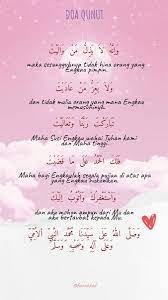 DOA QUNUT
وَإِنَّهُ لَا يَذِلُّ مَنْ وَالَيْتَ
maka sesungguhnya tidak hina orang yang
Engkau pimpin.
وَلَا يَعِزُّ مَنْ عَادَيْتَ
dan tidak mulia orang yang mana Engkau
memusuhinya.
تَبَارَكْتَ رَبَّنَا وَتَعَالَيْتَ
Maha Suci Engkau wahai Tuhan kami
dan Maha tinggi.
فَلَكَ الْحَمْدُ عَلَى مَا قَضَيْتَ
Maha bagi Engkaulah segala pujian di atas apa
yang Engkau hukumkan.
وَأَسْتَغْفِرُكَ وَأَتُوبُ إِلَيْكَ
dan aku mohon ampun dari Mu dan
aku bertaubat kepada Mu.
وَصَلَّى اللهُ عَلَى سَيِّدِنَا مُحَمَّدٍ النَّبِيِّ الْأُمِّيِّ
وَعَلَى آلِهِ وَصَحْبِهِ وَسَلَّمَ